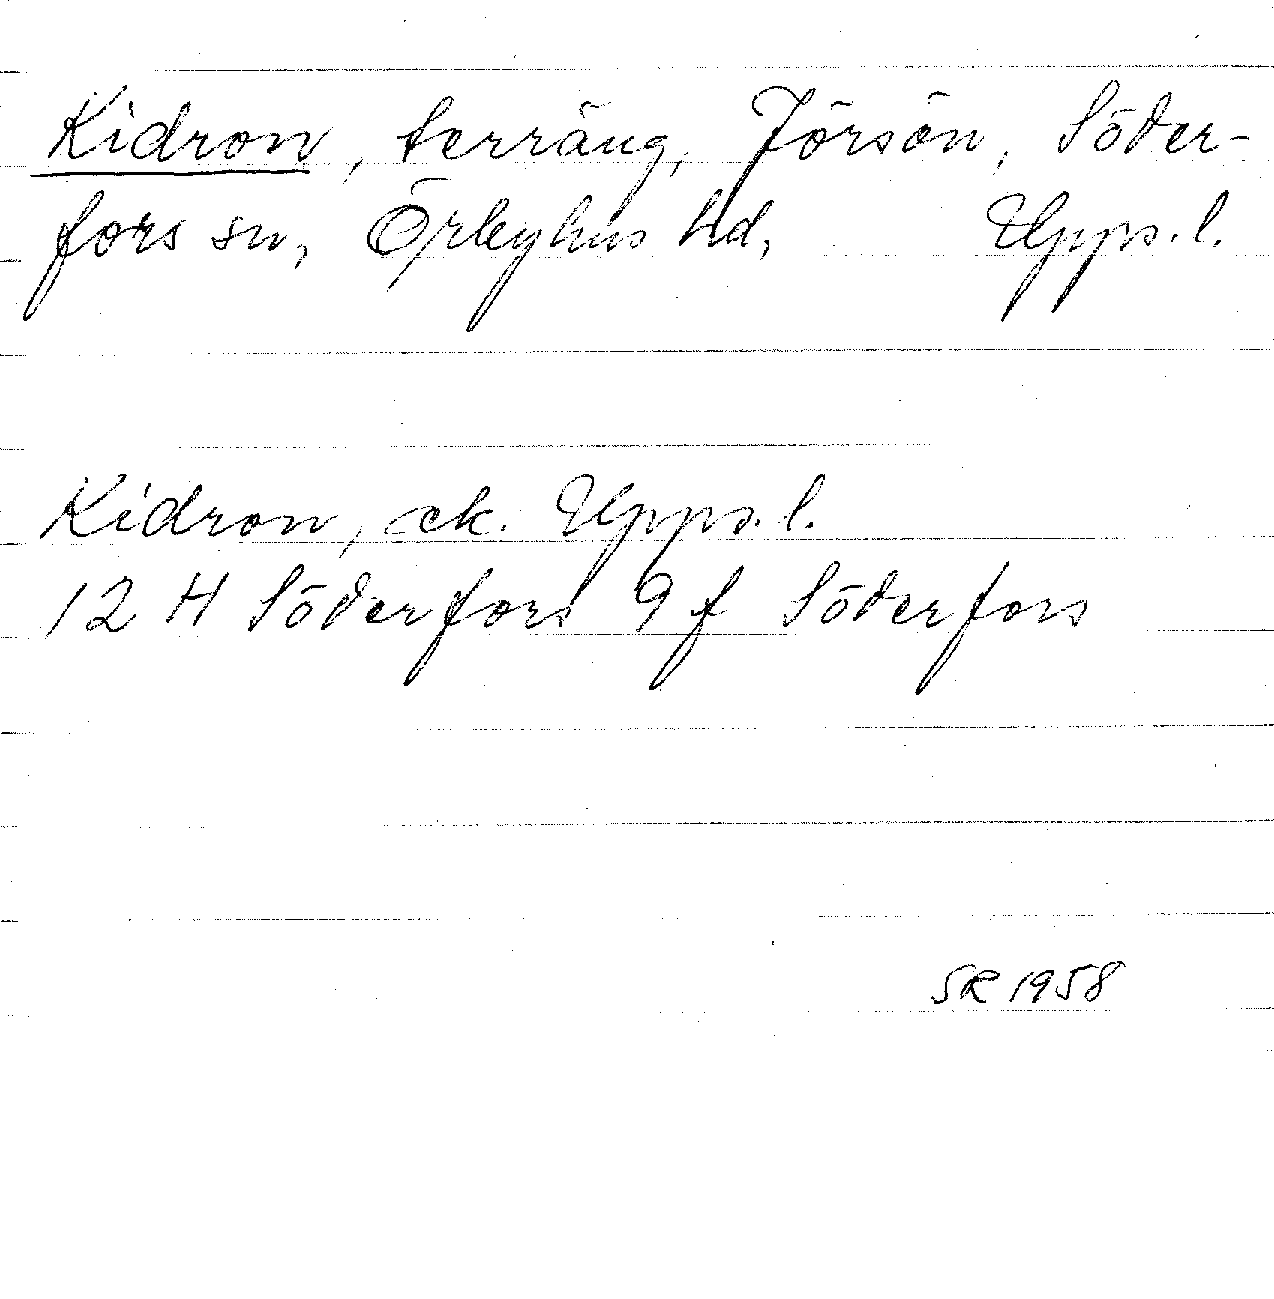 Kidron, terräng, Jörsön, Söder-
fors sn, Örbyhus hd, Upps. l.
Kidron, ek. Upps. l.
12 H Söderfors 9 f Söderfors
SR 1958